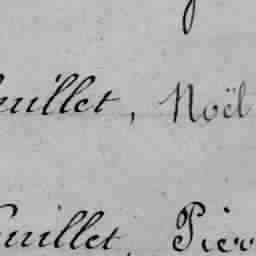 uillet, Noël
uillet, Pier